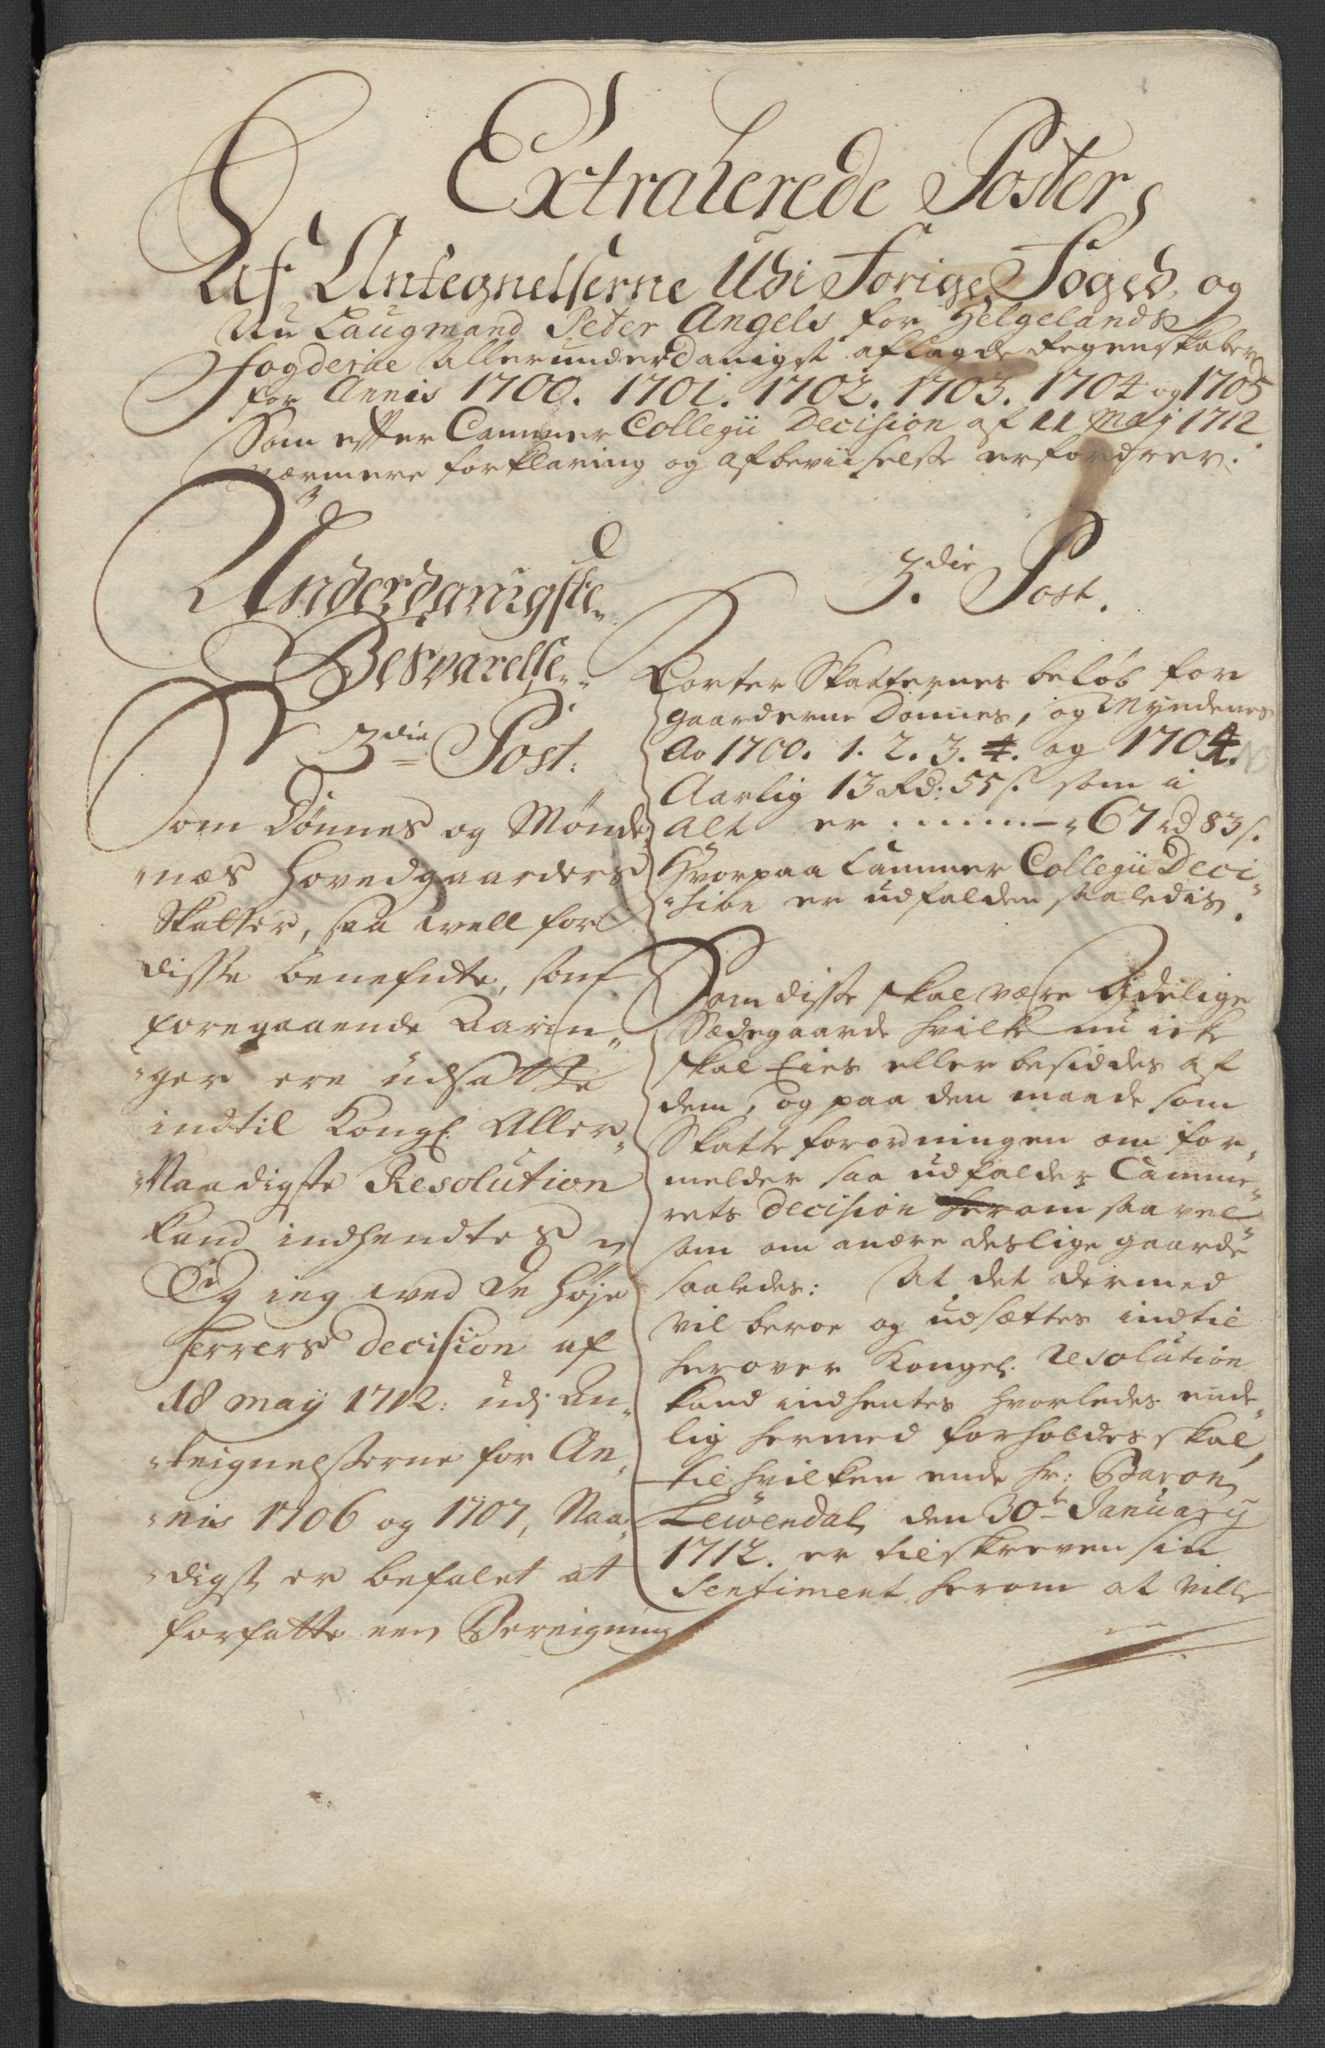 Extraherede Poster
Af Antegnelserne Udi Forige Foged, og
Nu Laugmand Peter Angels for Helgelands
Fogderie allerunderdanigst aflagde Regenskaber
for Annis 1700. 1701. 1702. 1703. 1704 og 1705
Som effter Cammer Collegii Decision af 11 Maij 1712
nærmere forklaring og afbeviiselse erfordrer.
Underdanigste
Besvarelse
3die Post.
Som Dønnes og Mønde
næs Hovedgaarders
Skatter, saa well for
disse benefnte, som
foregaaende Aarin
ger ere udsatte
indtil Kongl. Aller
Naadigste Resolution
kand indhendtes
Og ieg wed De Høje
Herrers Decision af
18 maij 1712: udj An
teignelsserne for An
nis 1706 og 1707, Naa
digst er befalet at
forfatte een Bereigning
3die Post.
Korter Skatternes beløb for
gaarderne Dønnes, og Myndenes
Ao 1700. 1. 2. 3. 4. og 1704.
Aarlig 13 Rd: 55 s. som i
Alt er 67 rd 83 s.
Hvorpaa Cammer Collegii Deci
sion er udfalden saaledis.
Som disse skal være Adelige
Sædegaarde hvilke nu icke
skal Eies eller besiddes af
dem, og paa den maade som
Skatteforordningen om for
melder saa udfalder Camme
rets Decision herom saa vel
som om andre deslige gaarde
saaledes: At det dermed
vil beroe og udsættes indtil
herover Kongel. Resolution
kand indhentes hvorledes ende
lig hermed forholdes skal,
til hvilken ende Hr: Baron
Lewendal den 30te January
1712. er tilskreven sin
Sentiment herom at ville